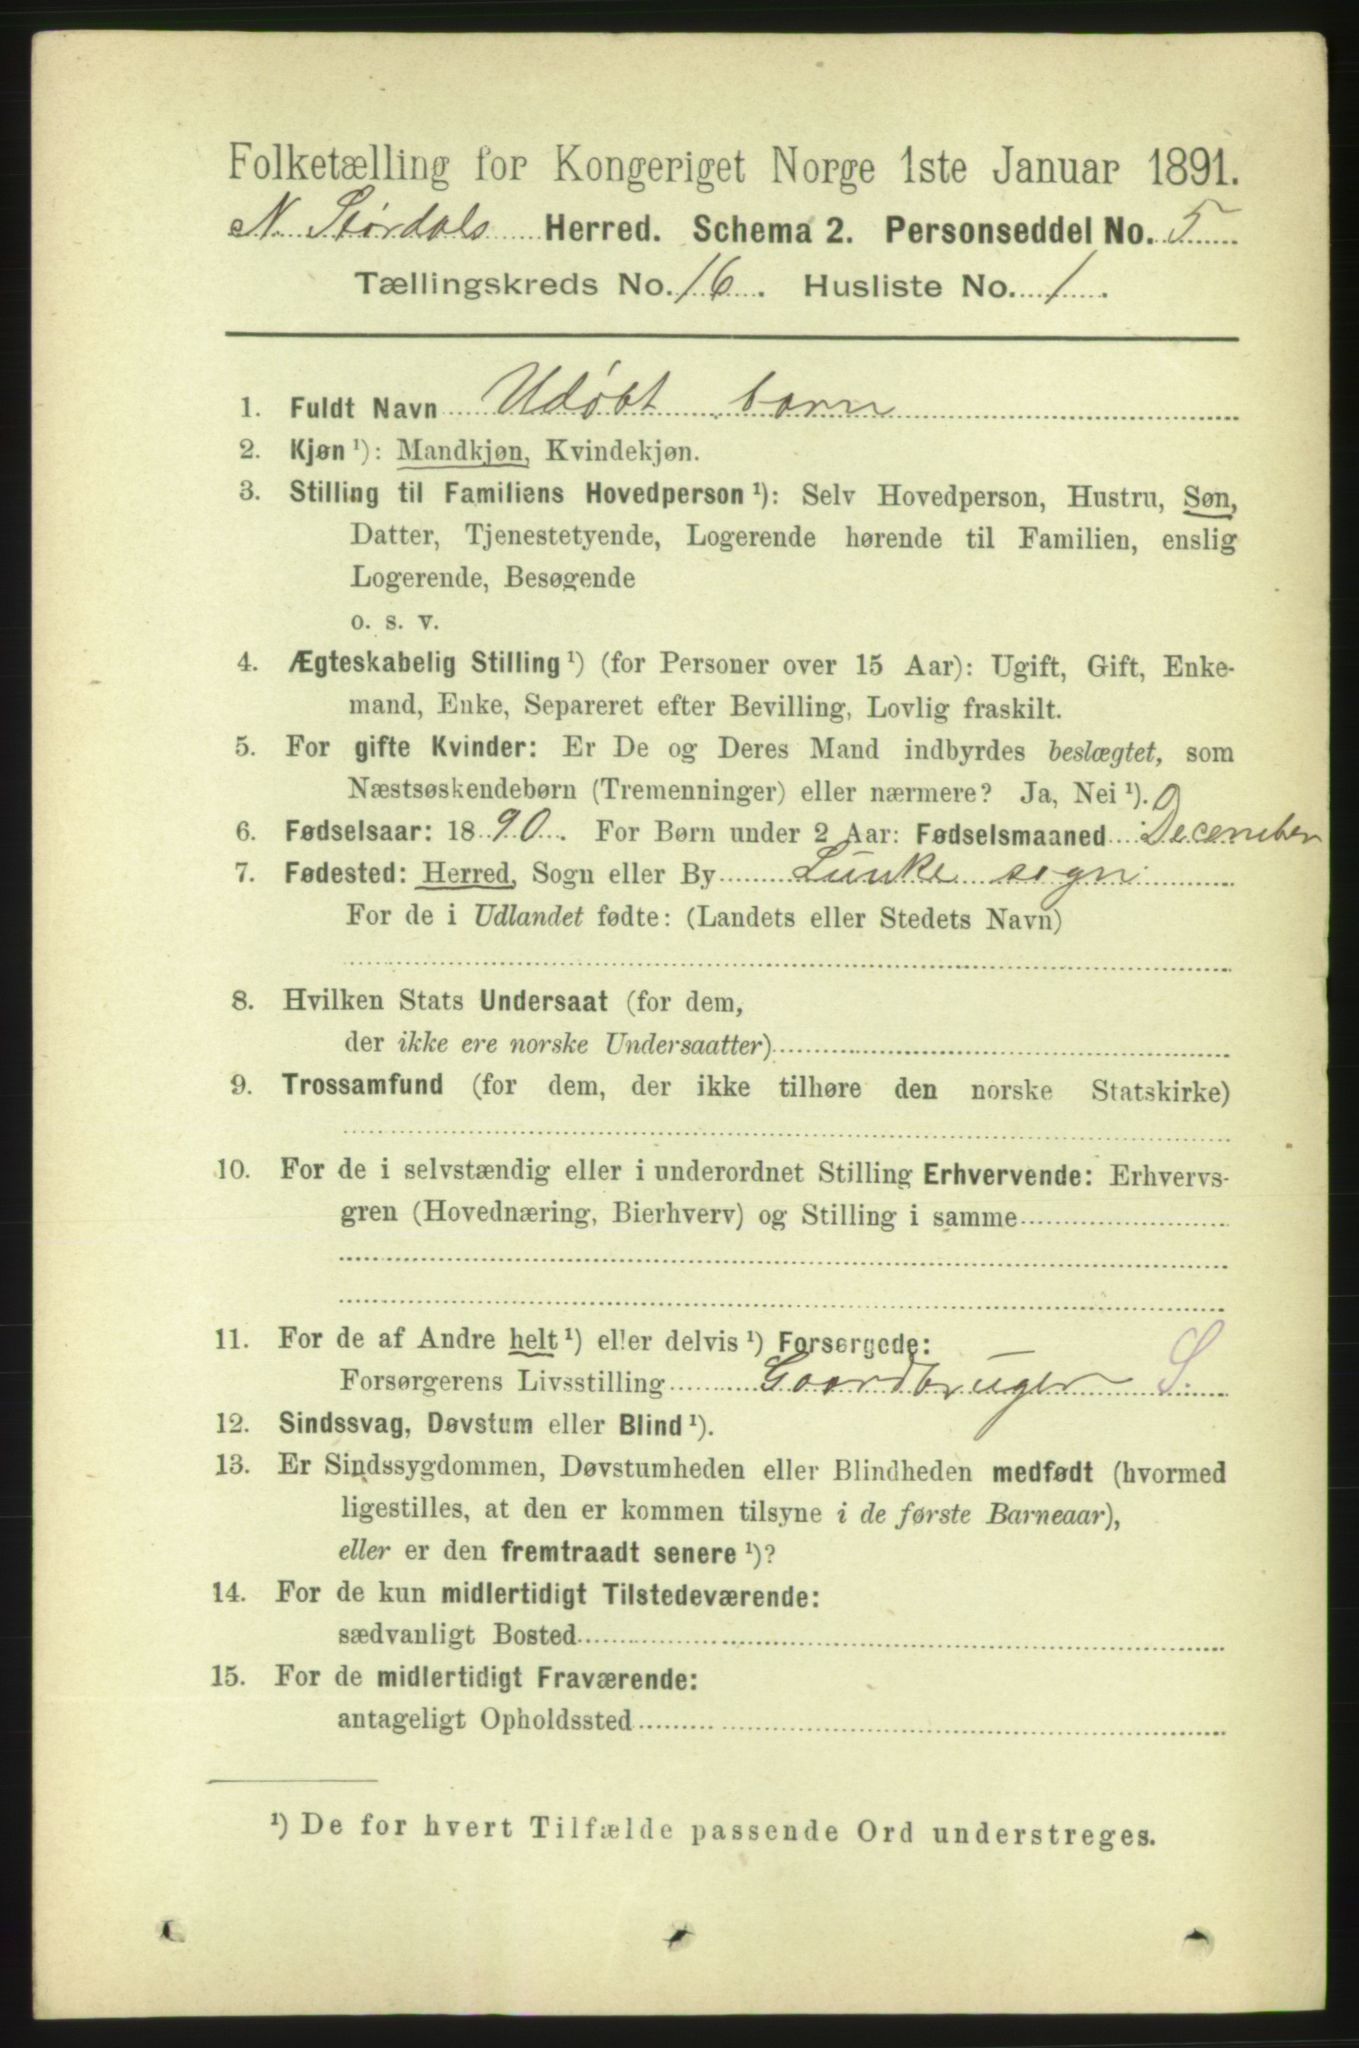 Folketælling for Kongeriget Norge 1ste Januar 1891.
N. Størdals Herred. Schema 2. Personseddel No. 5
Tællingskreds No. 16. Husliste No. 1.
1. Fuldt Navn Udøbt barn
2. Kjøn ¹): Mandkjøn, Kvindekjøn.
3. Stilling til Familiens Hovedperson ¹): Selv Hovedperson, Hustru, Søn,
Datter, Tjenestetyende, Logerende hørende til Familien, enslig
Logerende, Besøgende
o. s. v.
4. Ægteskabelig Stilling ¹) (for Personer over 15 Aar): Ugift, Gift, Enke-
mand, Enke, Separeret efter Bevilling, Lovlig fraskilt.
5. For gifte Kvinder: Er De og Deres Mand indbyrdes beslægtet, som
Næstsøskendebørn (Tremenninger) eller nærmere? Ja, Nei ¹).
6. Fødselsaar: 1890. For Børn under 2 Aar: Fødselsmaaned December
7. Fødested: Herred, Sogn eller By Lunke sogn
For de i Udlandet fødte: (Landets eller Stedets Navn)
8. Hvilken Stats Undersaat (for dem,
der ikke ere norske Undersaatter)
9. Trossamfund (for dem, der ikke tilhøre den norske Statskirke)
10. For de i selvstændig eller i underordnet Stilling Erhvervende: Erhvervs-
gren (Hovednæring, Bierhverv) og Stilling i samme
11. For de af Andre helt ¹) eller delvis ¹) Forsørgede:
Forsørgerens Livsstilling Gaardbruger S.
12. Sindssvag, Døvstum eller Blind ¹).
13. Er Sindssygdommen, Døvstumheden eller Blindheden medfødt (hvormed
ligestilles, at den er kommen tilsyne i de første Barneaar),
eller er den fremtraadt senere ¹)?
14. For de kun midlertidigt Tilstedeværende:
sædvanligt Bosted
15. For de midlertidigt Fraværende:
antageligt Opholdssted
¹) De for hvert Tilfælde passende Ord understreges.